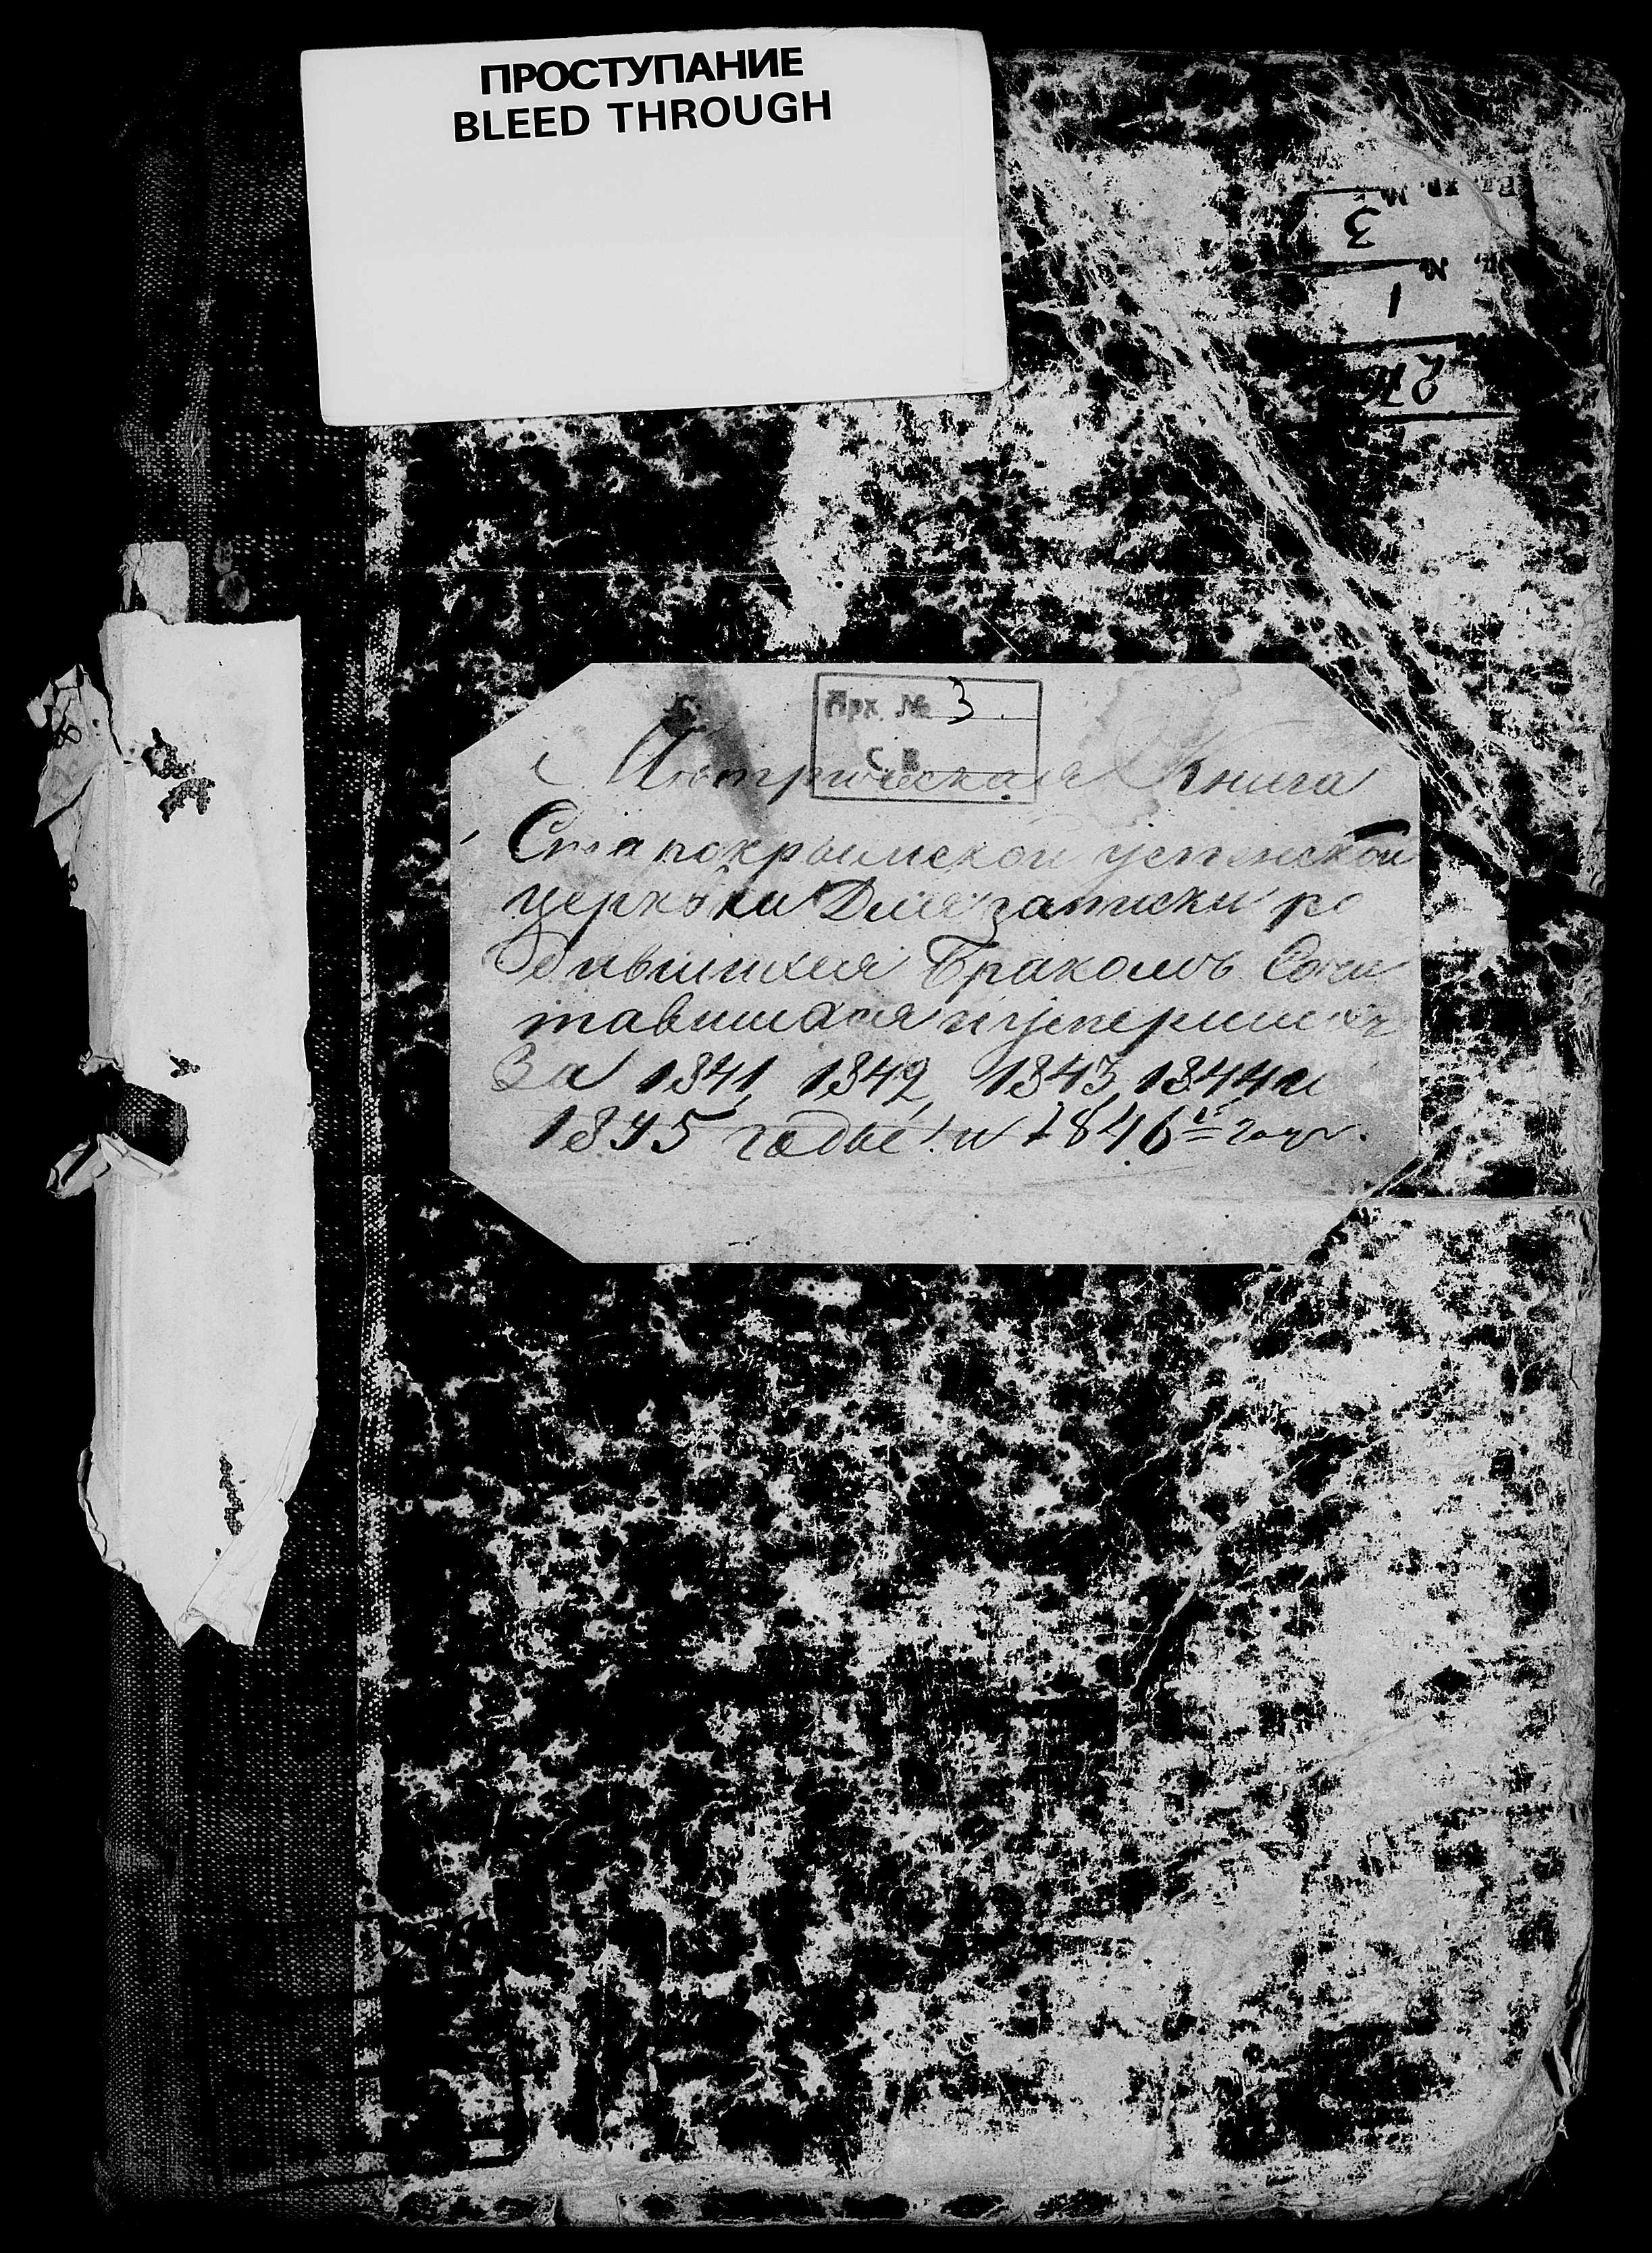 ПРОСТУПАНИЕ
BLEED THROUGH
№
3
№
1
Арх. № 3.
С. В.
Метрическая Книга
Старокрымской успенской
церкови Для записки ро
дившихся Бракомъ Соче
тавшихся и умерших
За 1841, 1842, 1843, 1844 и
1845 годы. и 1846й годъ.